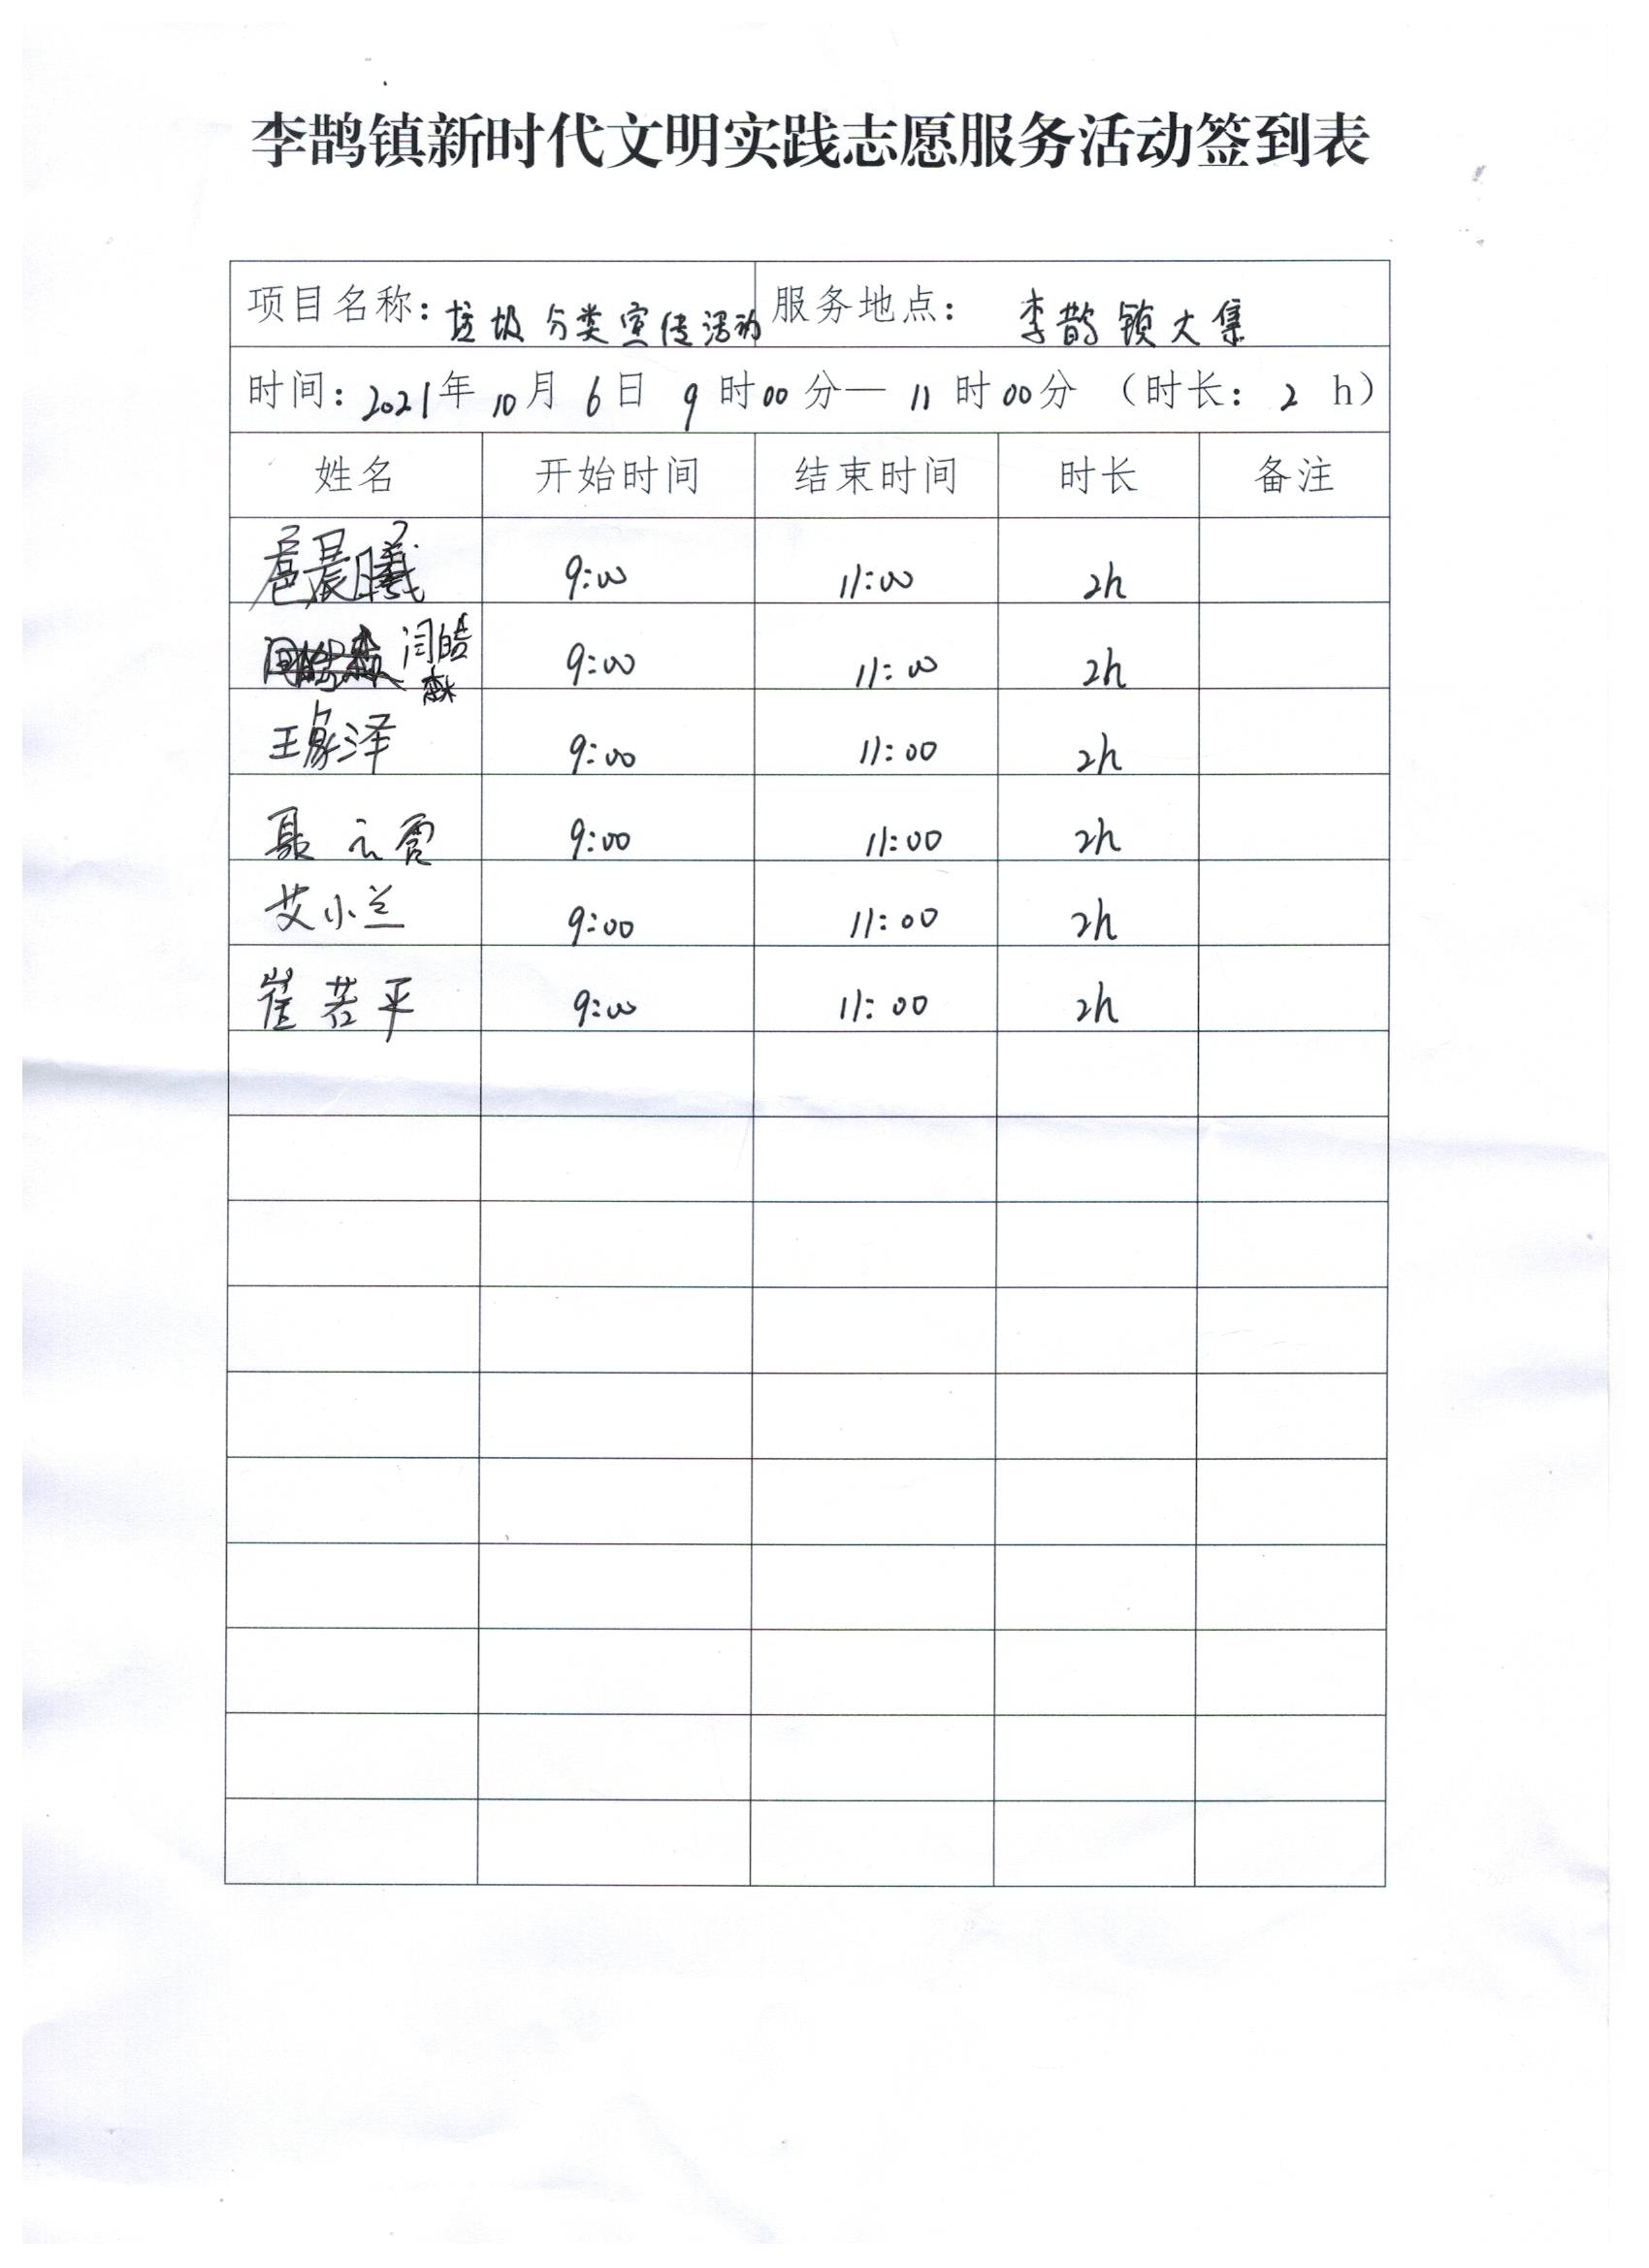 李鹊镇新时代文明实践志愿服务活动签到表
项目名称: 垃圾分类宣传活动 服务地点: 李鹊镇大集
时间: 2021年 10月 6日 9时00分— 11时00分 (时长: 2 h)
姓名 开始时间 结束时间 时长 备注
扈晨曦 9:00 11:00 2h
闫皓 9:00 11:00 2h
王泽 9:00 11:00 2h
聂云霞 9:00 11:00 2h
艾小兰 9:00 11:00 2h
崔若平 9:00 11:00 2h